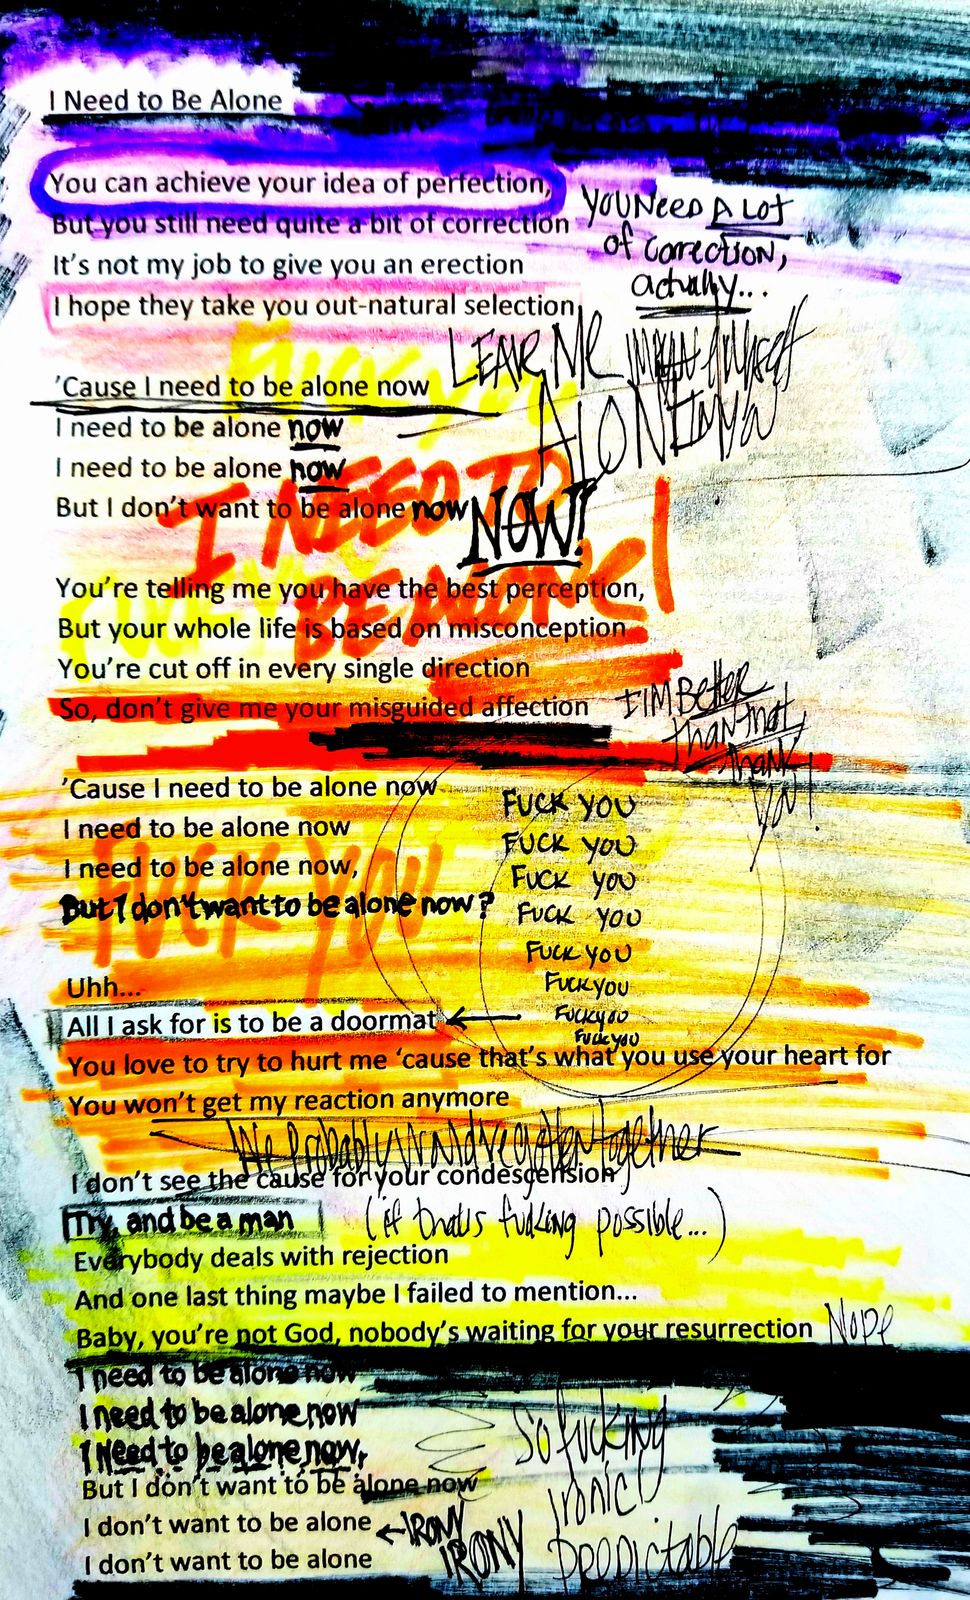 I Need to Be Alone
You can achieve your idea of perfection,
But you still need quite a bit of correction
YOU NEED A LOT
of correction,
actually...
It's not my job to give you an erection
I hope they take you out-natural selection
'Cause I need to be alone now
LEAVE ME
ALONE
I need to be alone now
I need to be alone now
But I don't want to be alone now
NOW!
I NEED TO
BE ALONE!
You're telling me you have the best perception,
But your whole life is based on misconception
You're cut off in every single direction
So, don't give me your misguided affection
I'M Better
than that,
thank
you!
'Cause I need to be alone now
I need to be alone now
I need to be alone now,
But I don't want to be alone now?
FUCK YOU
FUCK YOU
FUCK YOU
FUCK YOU
FUCK YOU
FUCK YOU
FUCK YOU
FUCK YOU
FUCK YOU
Uhh...
All I ask for is to be a doormat
You love to try to hurt me 'cause that's what you use your heart for
You won't get my reaction anymore
We Probably Would've gotten together
I don't see the cause for your condescension
Try, and be a man
(if that's fucking possible...)
Everybody deals with rejection
And one last thing maybe I failed to mention...
Baby, you're not God, nobody's waiting for your resurrection
Nope
I need to be alone now
I need to be alone now
I need to be alone now,
But I don't want to be alone now
I don't want to be alone
I don't want to be alone
IRONY
IRONY
So fucking
Ironic
Predictable